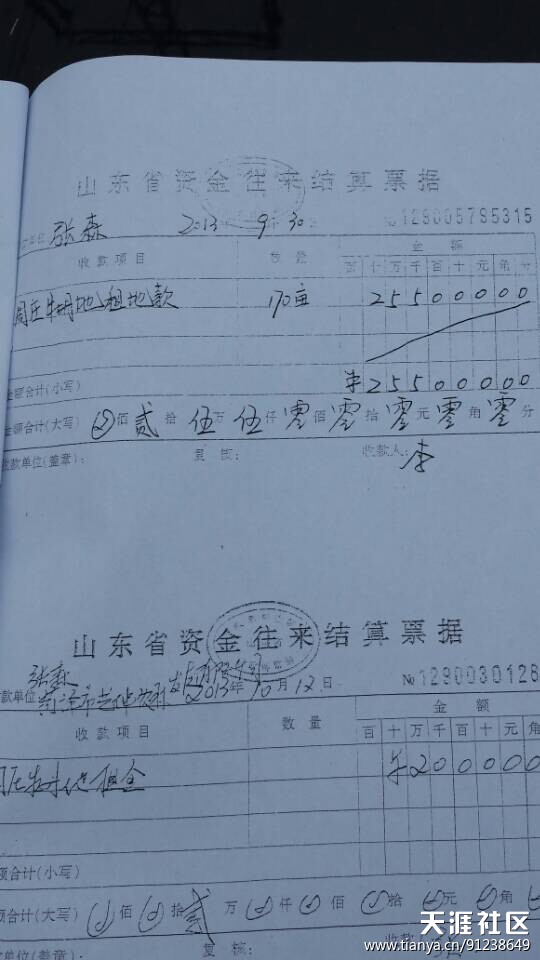 山东省资金往来结算票据
张森 2013 9 30 №129005795315
收款项目 数量 金额
百十万千百十元角分
周庄 地租地款 170亩 25500000
金额合计(小写) ¥25500000
金额合计(大写) 佰 贰 拾 伍 万 伍 仟 零 佰 零 拾 零 元 零 角 零 分
收款单位(盖章): 复核: 收款人: 李
山东省资金往来结算票据
张森
款单位 菏泽市 2013年10月12日 №1290030126
收款项目 数量 金额
百十万千百十元角
租金 ¥2000000
额合计(小写)
额合计(大写) 佰 拾 贰 万 仟 佰 拾 元 角
单位(盖章): 复核: 收款
天涯社区
www.tianya.cn/91238649